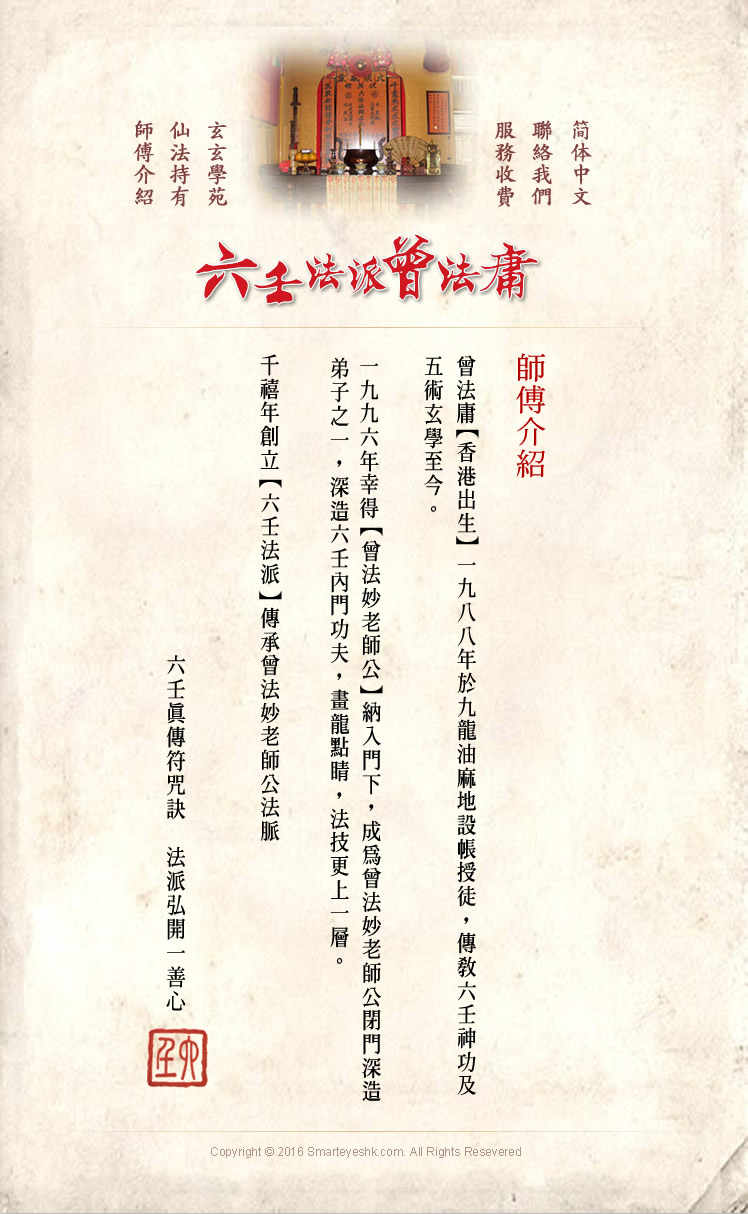 師傅介紹
仙法持有
玄玄學苑
服務收費
聯絡我們
简体中文
六壬法派曾法庸
師傅介紹
曾法庸【香港出生】一九八八年於九龍油麻地設帳授徒，傳教六壬神功及
五術玄學至今。
一九九六年幸得【曾法妙老師公】納入門下，成為曾法妙老師公閉門深造
弟子之一，深造六壬內門功夫，畫龍點睛，法技更上一層。
千禧年創立【六壬法派】傳承曾法妙老師公法脈
六壬眞傳符咒訣　法派弘開一善心
六壬
Copyright © 2016 Smarteyeshk.com. All Rights Resevered